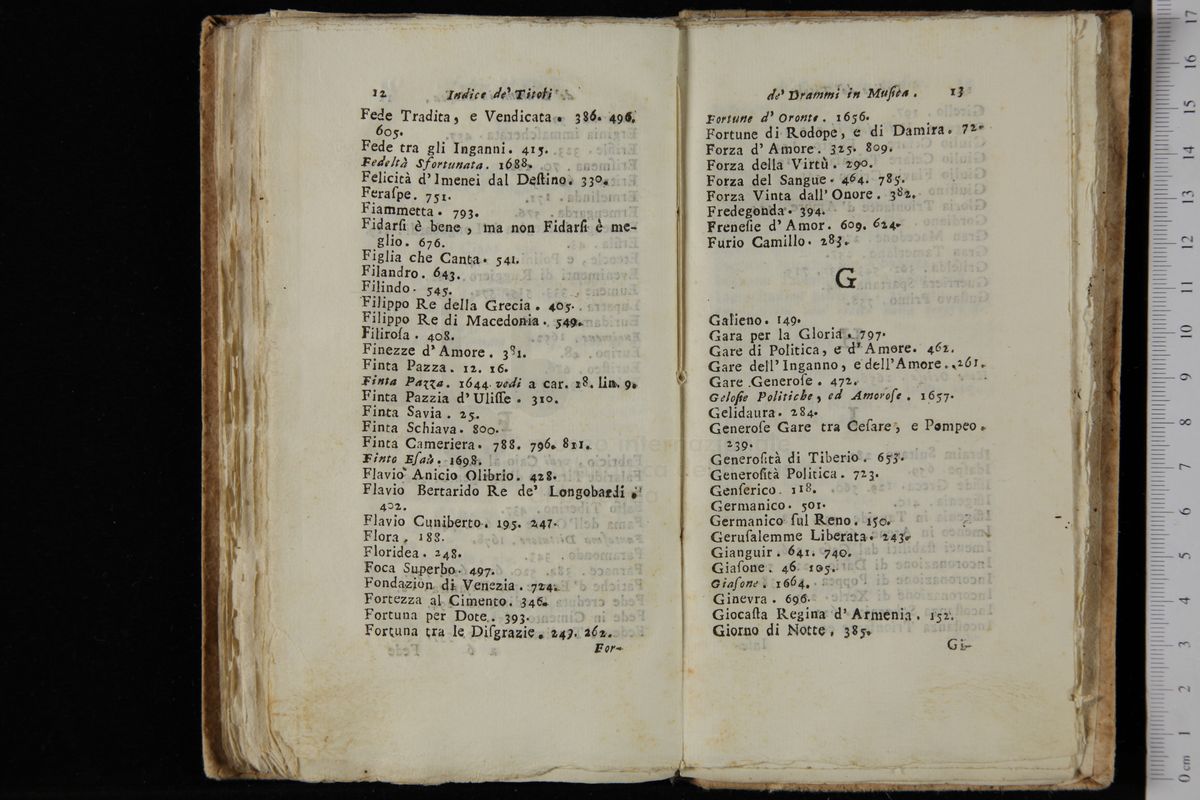 12 Indice de' Titoli
Fede Tradita, e Vendicata. 386. 496.
605.
Fede tra gli Inganni. 415.
Fedeltà Sfortunata. 1688.
Felicità d'Imenei dal Deſtino. 330.
Feraſpe. 751.
Fiammetta. 793.
Fidarſi è bene, ma non Fidarſi è me-
glio. 676.
Figlia che Canta. 541.
Filandro. 643.
Filindo. 545.
Filippo Re della Grecia. 405.
Filippo Re di Macedonia. 549.
Filiroſa. 408.
Finezze d'Amore. 381.
Finta Pazza. 12. 16.
Finta Pazza. 1644. vedi a car. 28. lin. 9.
Finta Pazzia d'Uliſſe. 310.
Finta Savia. 25.
Finta Schiava. 800.
Finta Cameriera. 788. 796. 811.
Finto Eſaù. 1698.
Flavio Anicio Olibrio. 428.
Flavio Bertarido Re de' Longobardi.
402.
Flavio Cuniberto. 195. 247.
Flora. 188.
Floridea. 248.
Foca Superbo. 497.
Fondazion di Venezia. 724.
Fortezza al Cimento. 346.
Fortuna per Dote. 393.
Fortuna tra le Diſgrazie. 249. 262.
For-
de' Drammi in Muſica. 13
Fortune d'Oronte. 1656.
Fortune di Rodope, e di Damira. 72.
Forza d'Amore. 325. 809.
Forza della Virtù. 290.
Forza del Sangue. 464. 785.
Forza Vinta dall'Onore. 382.
Fredegonda. 394.
Freneſie d'Amor. 609. 624.
Furio Camillo. 283.
G
Galieno. 149.
Gara per la Gloria. 797.
Gare di Politica, e d'Amore. 462.
Gare dell'Inganno, e dell'Amore. 261.
Gare Generoſe. 472.
Geloſie Politiche, ed Amoroſe. 1657.
Gelidaura. 284.
Generoſe Gare tra Ceſare, e Pompeo.
239.
Generoſità di Tiberio. 653.
Generoſità Politica. 723.
Genſerico. 118.
Germanico. 501.
Germanico ſul Reno. 150.
Geruſalemme Liberata. 243.
Gianguir. 641. 740.
Giaſone. 46. 105.
Giaſone. 1664.
Ginevra. 696.
Giocaſta Regina d'Armenia. 152.
Giorno di Notte. 385.
Gi-
0 cm 1 2 3 4 5 6 7 8 9 10 11 12 13 14 15 16 17